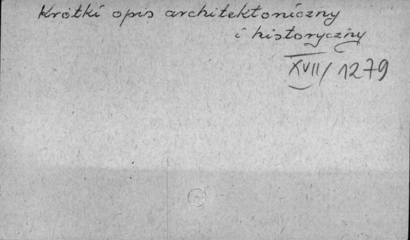 Krótki opis architektoniczny
i historyczny
XVII/1279